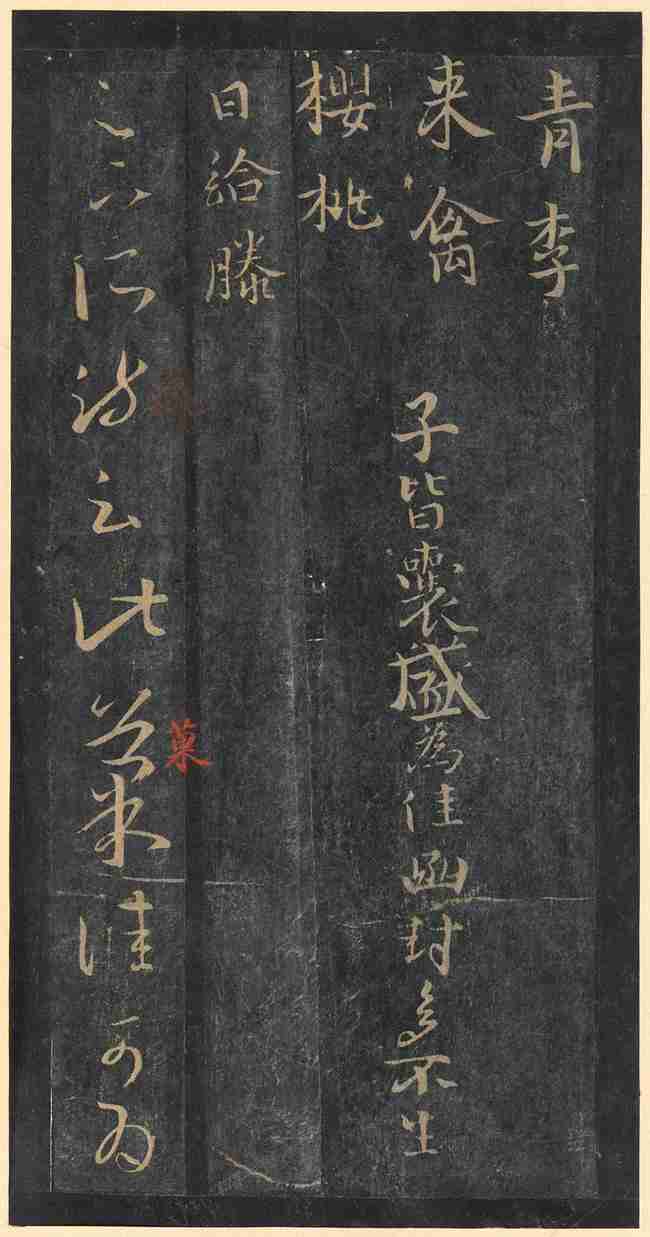 青李
来禽 子皆囊盛為佳函封多不生
櫻桃
日給滕
足下所疏云此菓佳可為
菓